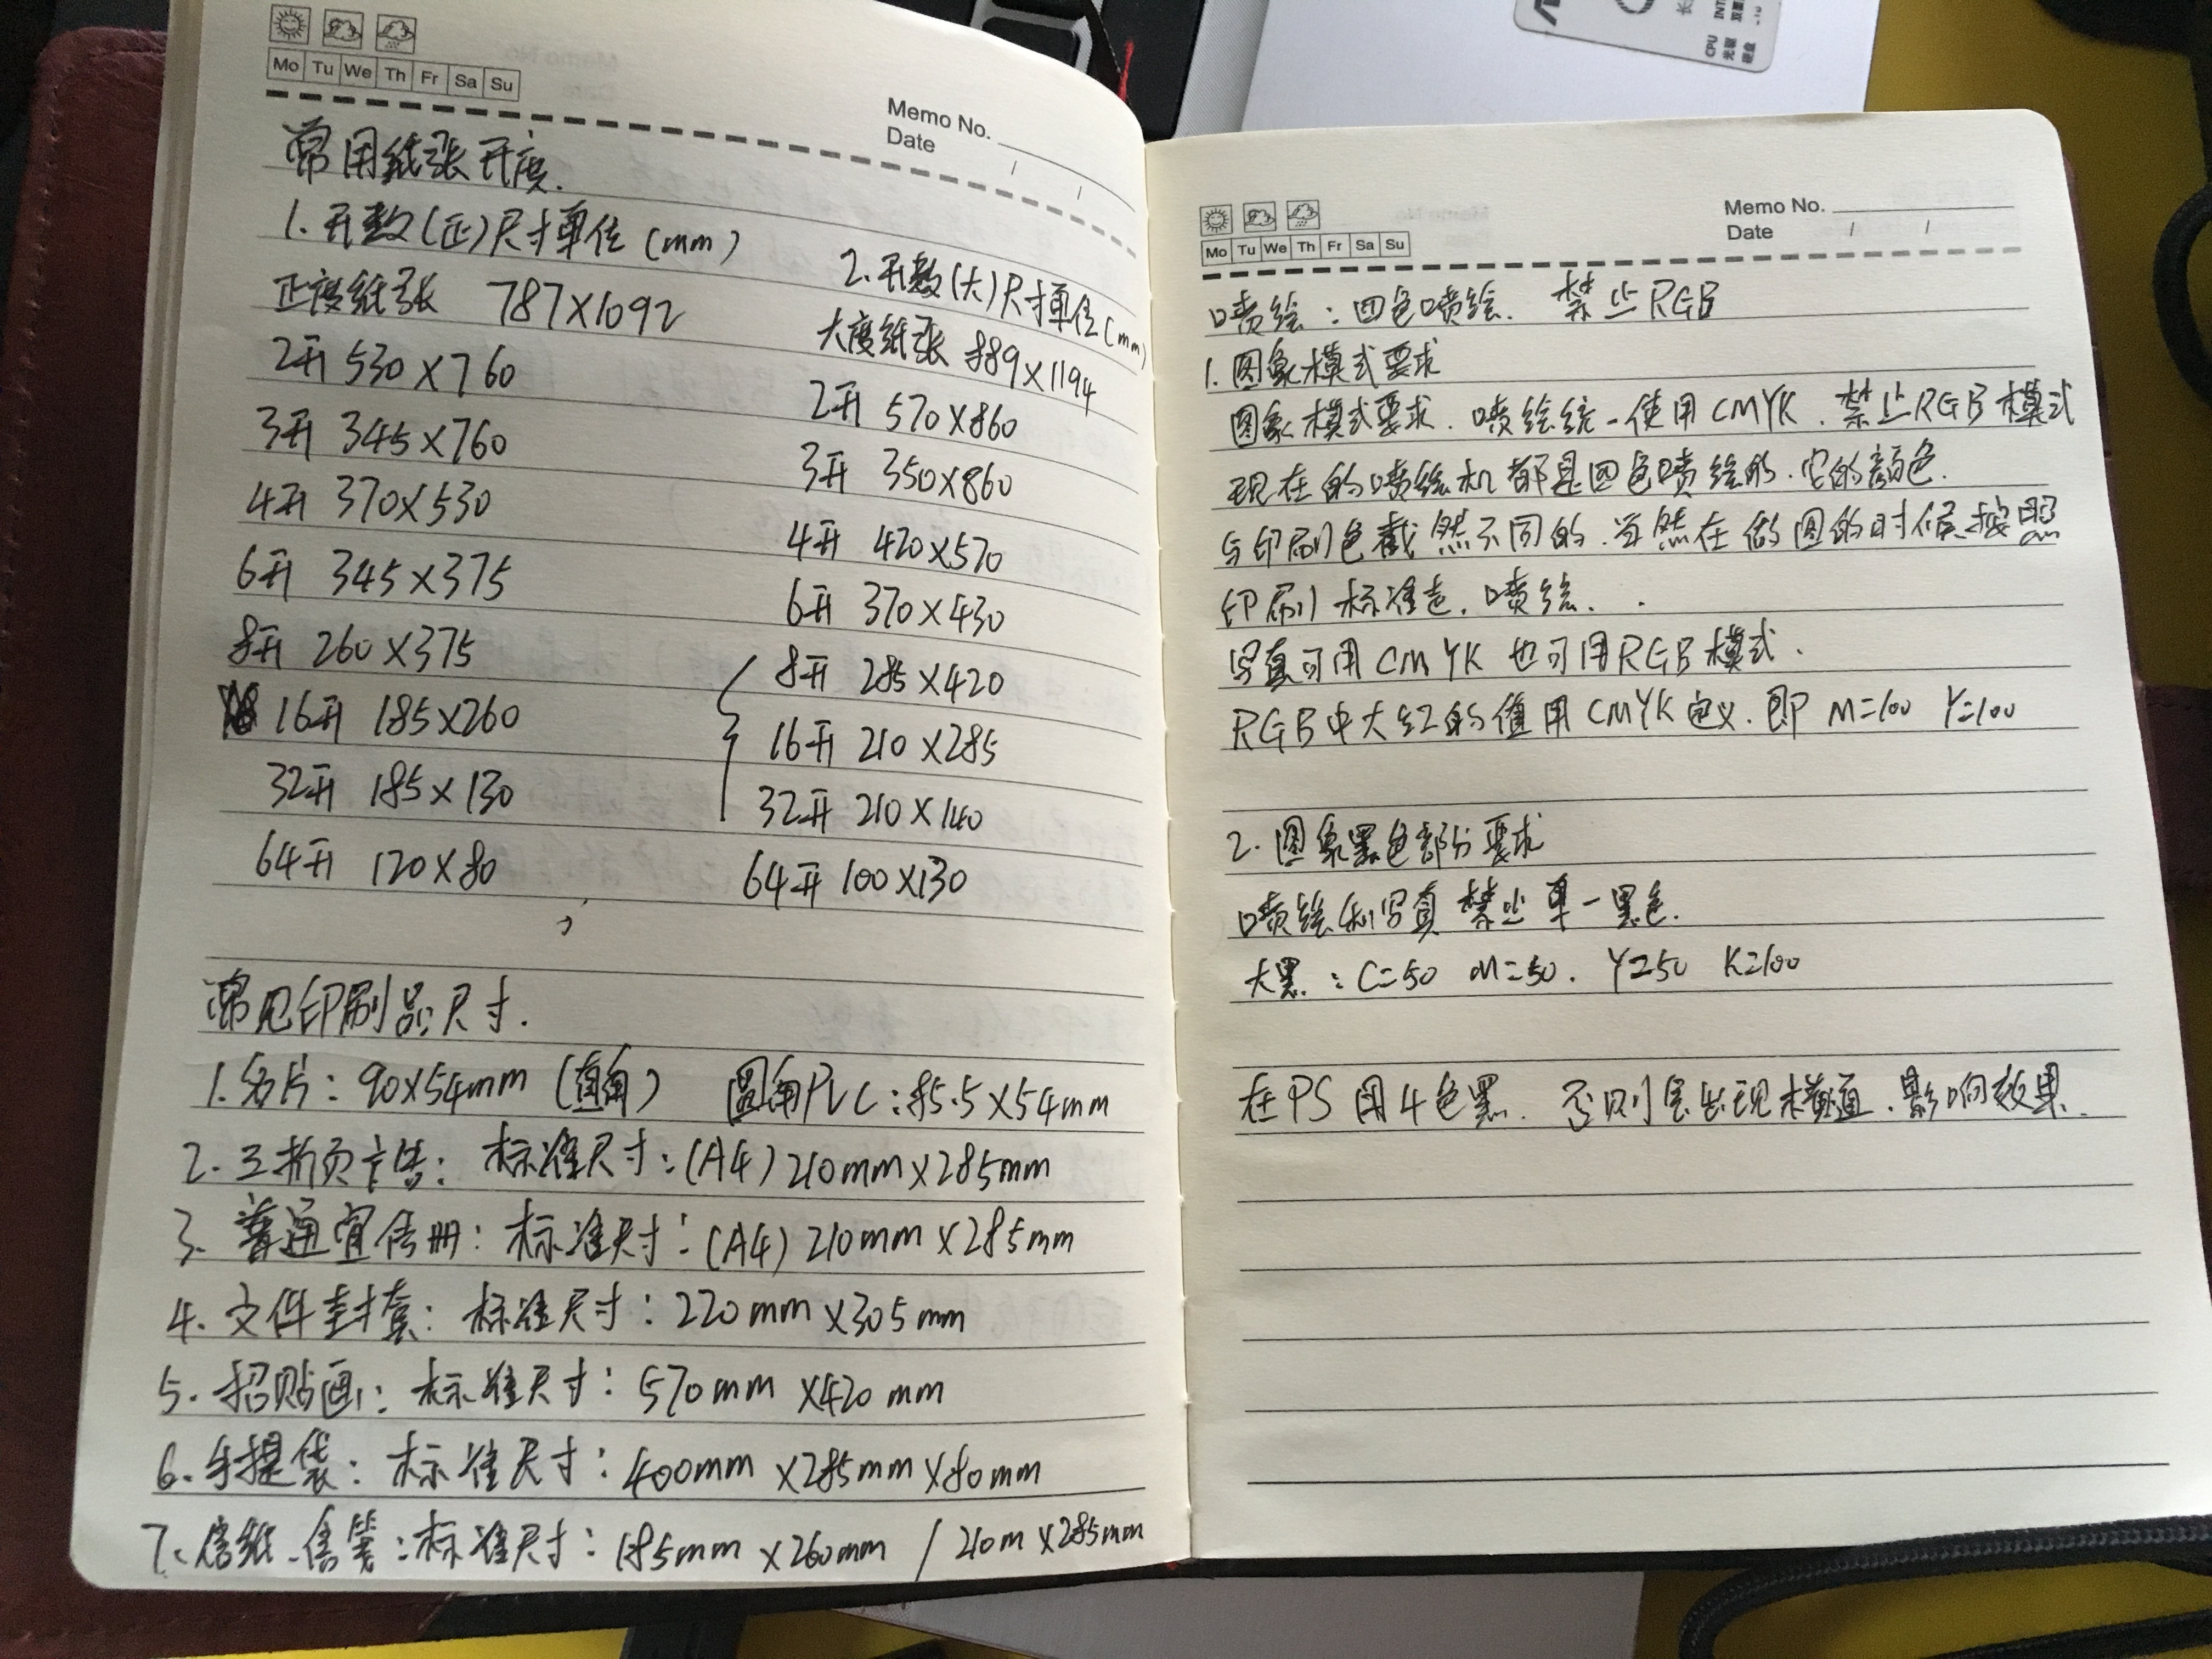 Mo Tu We Th Fr Sa Su
Memo No.
Date / /
常用纸张开度.
1. 开数(正)尺寸单位 (mm)
正度纸张 787×1092
2开 530×760
3开 345×760
4开 370×530
6开 345×375
8开 260×375
16开 185×260
32开 185×130
64开 120×80
2. 开数(大)尺寸单位(mm)
大度纸张 889×1194
2开 570×860
3开 350×860
4开 420×570
6开 370×430
8开 285×420
16开 210×285
32开 210×140
64开 100×130
常见印刷品尺寸.
1. 名片: 90×54mm (直角) 圆角PVC: 85.5×54mm
2. 三折页广告: 标准尺寸: (A4) 210mm×285mm
3. 普通宣传册: 标准尺寸: (A4) 210mm×285mm
4. 文件封套: 标准尺寸: 220mm×305mm
5. 招贴画: 标准尺寸: 570mm×420mm
6. 手提袋: 标准尺寸: 400mm×285mm×80mm
7、信纸、信笺: 标准尺寸: 185mm×260mm / 210m×285mm
Mo Tu We Th Fr Sa Su
Memo No.
Date / /
喷绘: 四色喷绘. 禁止RGB
1. 图象模式要求
图象模式要求. 喷绘统一使用CMYK. 禁止RGB模式
现在的喷绘机都是四色喷绘的. 它的颜色.
与印刷色截然不同的. 当然在做图的时候按照
印刷标准走. 喷绘. .
写真可用CMYK 也可用RGB模式.
RGB中大红的值用CMYK定义. 即 M=100 Y=100
2. 图象黑色部分要求
喷绘和写真禁止单一黑色.
大黑: C=50 M=50. Y=50 K=100
在PS用4色黑. 否则会出现横道. 影响效果.
CPU
光驱
硬盘